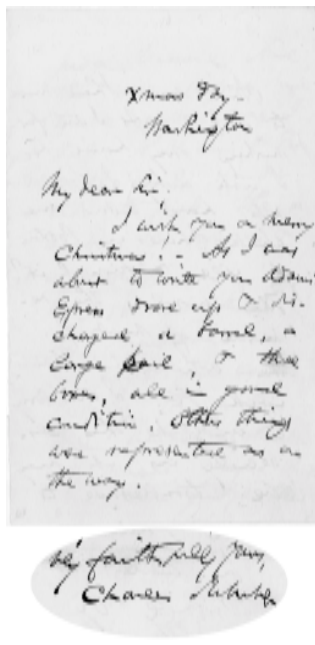 Xmas Day -
Washington
My dear Sir,
I wish you a merry
Christmas! - As I was
about to write you Adams
Express drove up & dis-
charged a barrel, a
large pail, & three
boxes, all in good
condition. Others things
were represented as on
the way.
Very faithfully Yours,
Charles Sumner